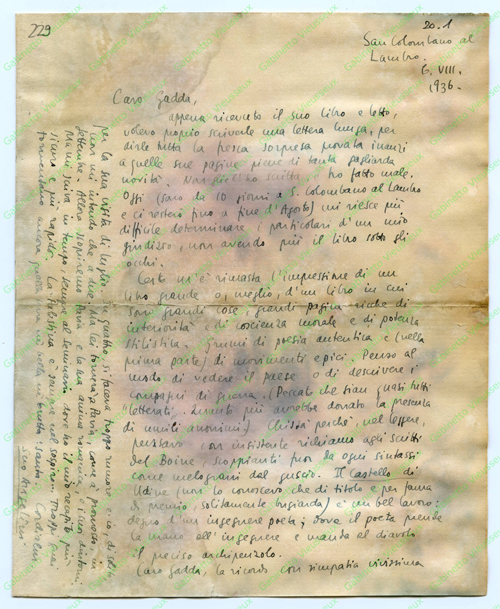 229
20.1
San Colombano al
Lambro.
6. VIII.
1936.
Caro Gadda,
appena ricevuto il suo libro e letto,
volevo proprio scriverle una lettera lunga, per
dirle tutta la fresca sorpresa provata innanzi
a quelle sue pagine piene di tanta gagliarda
novità. Non gliel'ho scritta, e ho fatto male.
Oggi (sono da 10 giorni a S. Colombano al Lambro
e ci resterò fino a fine d'Agosto) mi riesce più
difficile determinare i particolari d'un mio
giudizio, non avendo più il libro sotto gli
occhi.
Certo m'è rimasta l'impressione di un
libro grande o, meglio, d'un libro in cui
sono grandi cose, grandi pagine ricche di
interiorità e di coscienza morale e di potenza
stilistica, gremi di poesia autentica e (nella
prima parte) di movimenti epici. Penso al
modo di vedere il paese o di descrivere i
compagni di guerra. (Peccato che sian quasi tutti
"letterati". Quanti più avrebbe donato la presenza
di umili anonimi.) Chissà perché, nel leggere,
pensavo con insistente richiamo agli scritti
del Boine, scoppianti fuor da ogni sintassi
come melograni dal guscio. Il Castello di
Udine (non lo conoscevo che di titolo e per fama
di premio, solitamente bugiarda) è un bel lavoro:
degno d'un ingegnere poeta; dove il poeta prende
la mano all'ingegnere e manda al diavolo
il preciso archipenzolo.
Caro Gadda, la ricordo con simpatia vivissima
per la sua visita di luglio. In quattro, si faceva troppo rumore e io, di solito,
non mi intendo che a due. Ma lei tornerà a Pavia, come à promesso, in
settembre. Allora scopriremo Pavia e la sua anima romanica, i suoi dintorni.
Ma mi scriva in tempo, sempre al Seminario, dove ho il mio recapito più
sicuro e più rapido. La
tormentano ancora
Suo